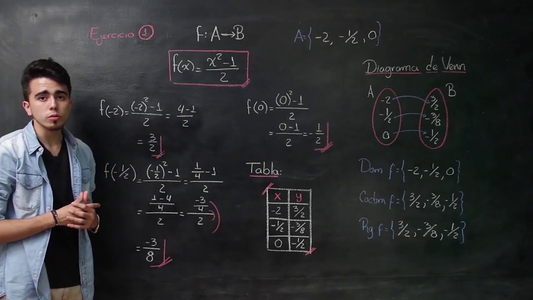 Ejercicio 1
f: A→B
A={-2, -1/2, 0}
f(x) = (x²-1)/2
Diagrama de Venn
A B
-2 3/2
-1/2 -3/8
0 -1/2
f(-2) = ((-2)²-1)/2 = (4-1)/2
= 3/2
f(0) = ((0)²-1)/2
= (0-1)/2 = -1/2
f(-1/2) = ((-1/2)²-1)/2 = (1/4-1)/2
= ((1-4)/4)/2 = (-3/4)/2
= -3/8
Tabla:
x y
-2 3/2
-1/2 -3/8
0 -1/2
Dom f={-2, -1/2, 0}
Codom f={3/2, -3/8, -1/2}
Rg f={3/2, -3/8, -1/2}